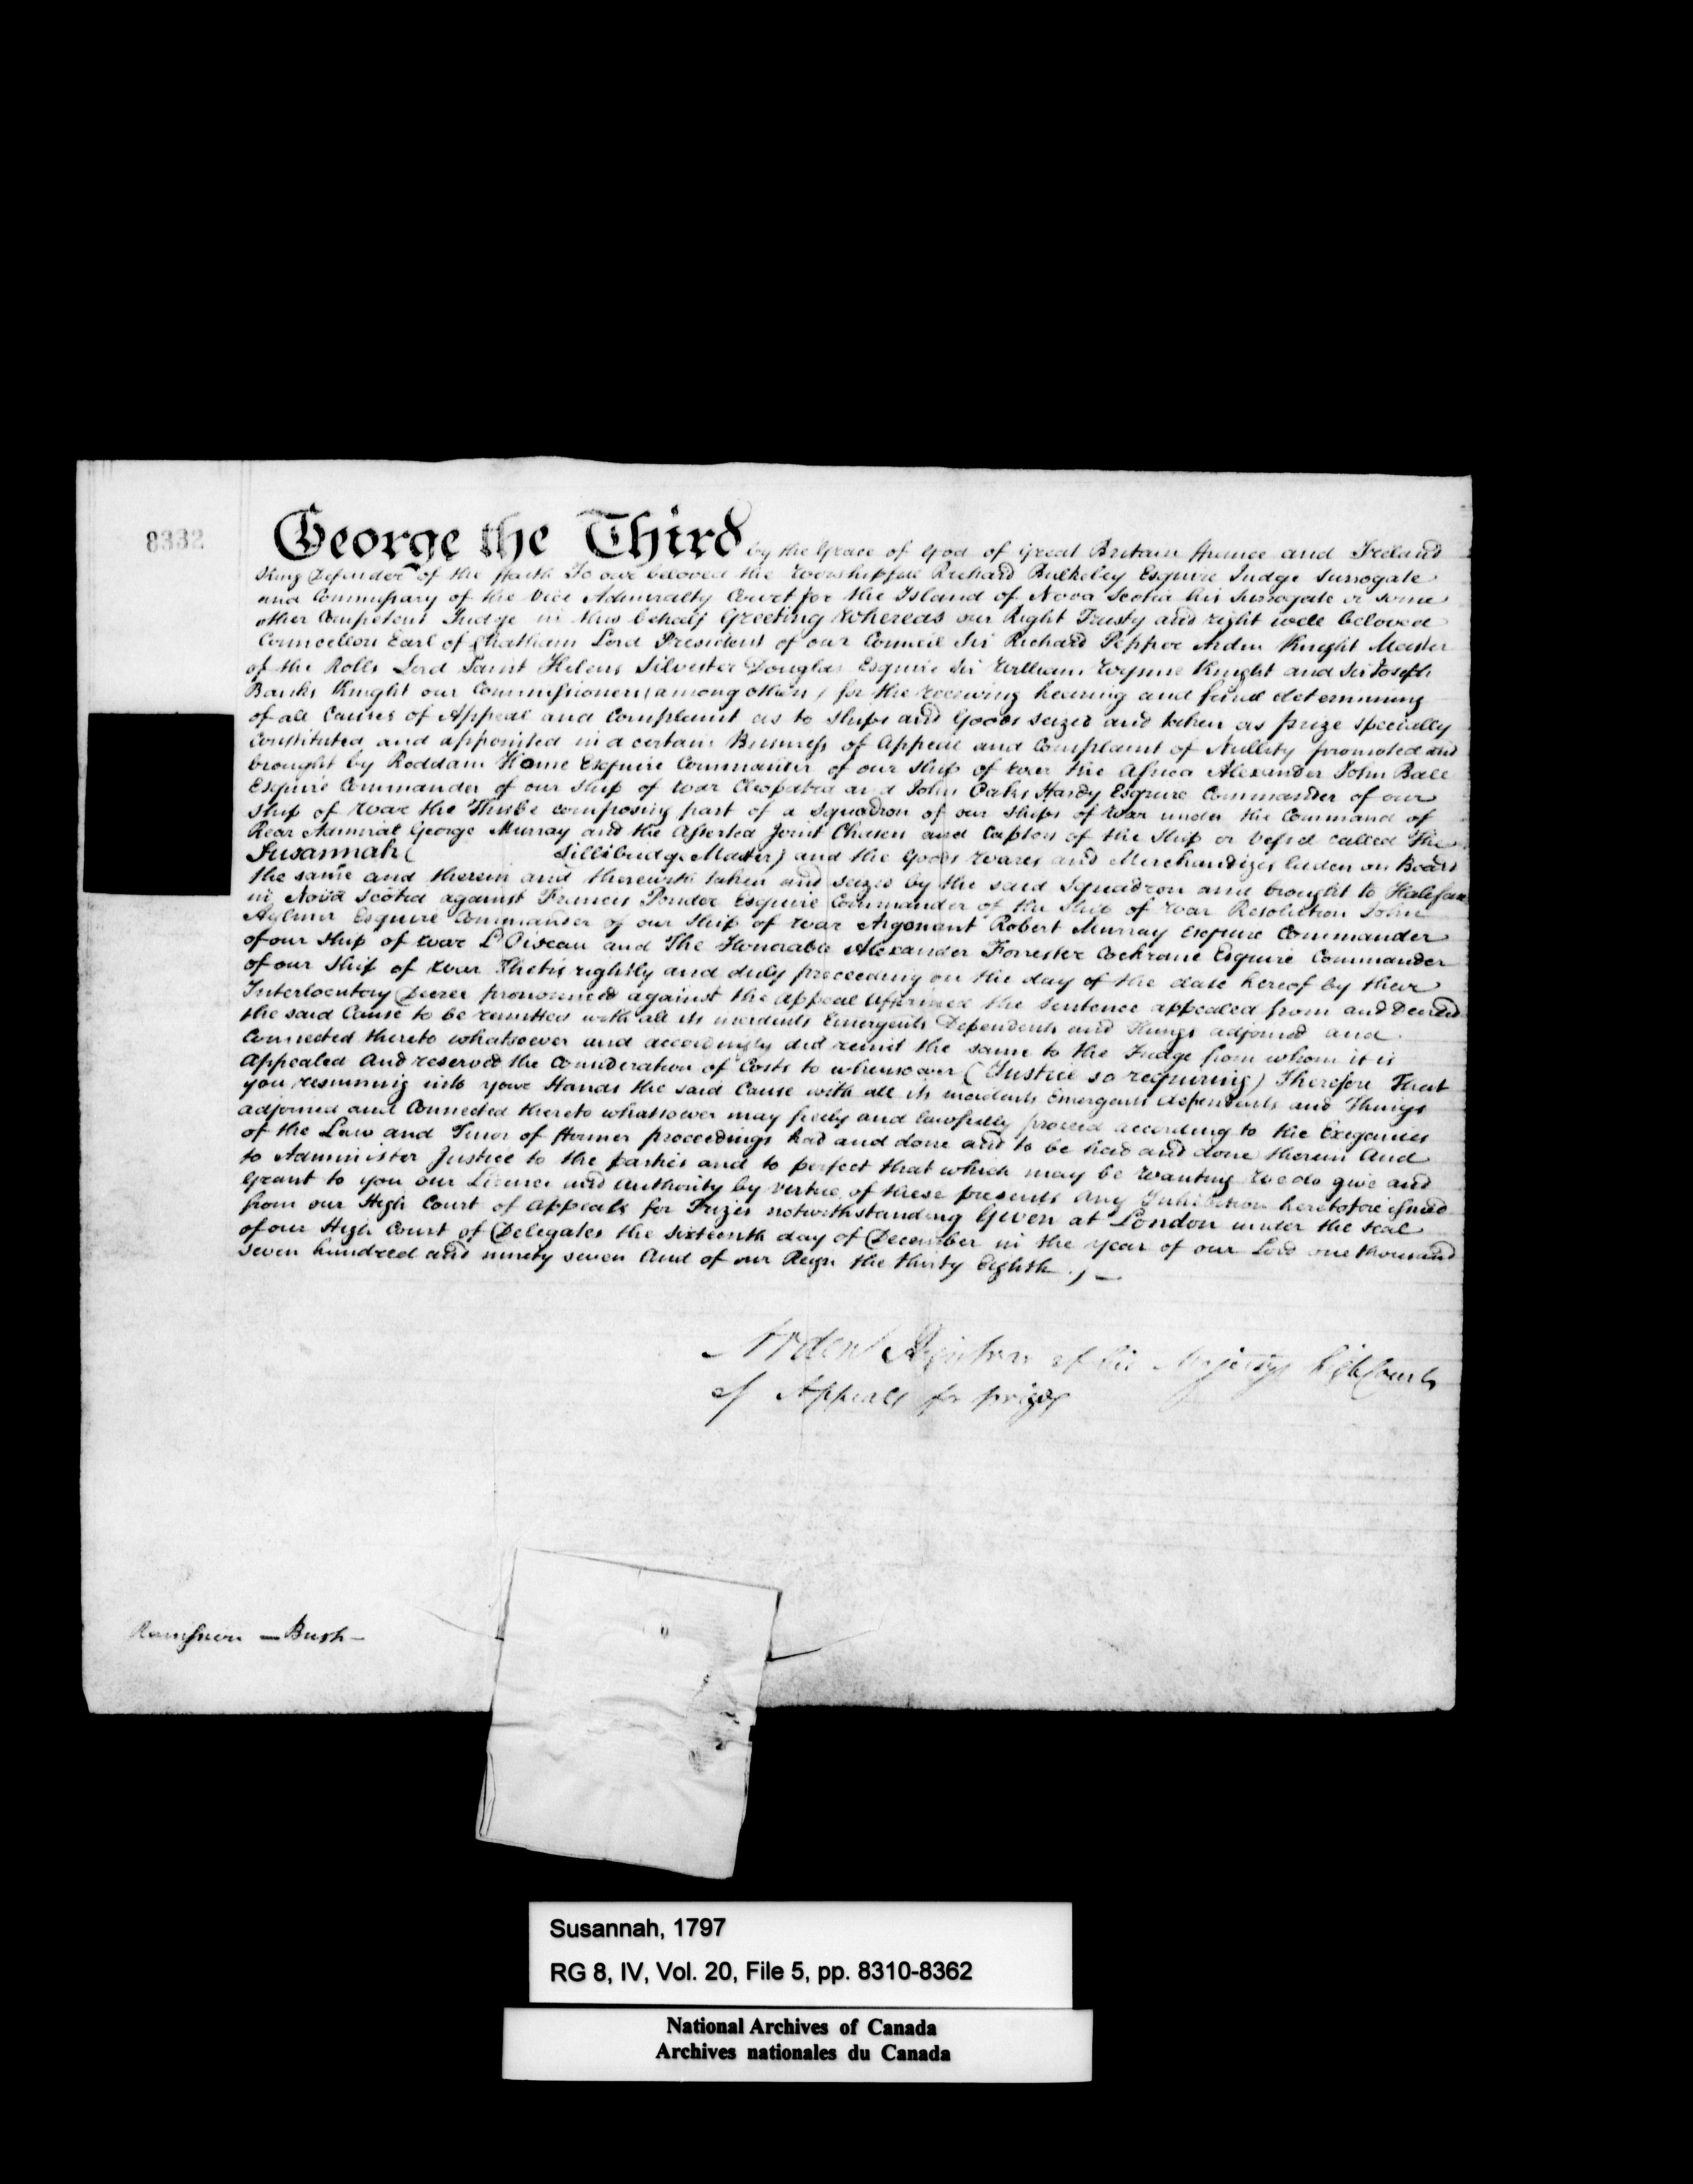 8332
George the Third by the Grace of God of Great Britain France and Ireland
King Defender of the Faith To our beloved the Worshipful Richard Bulkeley Esquire Judge Surrogate
and Commissary of the Vice Admiralty Court for the Island of Nova Scotia his Surrogate or some
other Competent Judge in this behalf Greeting Whereas our Right Trusty and right well beloved
Councellors Earl of Chatham Lord President of our Council Sir Richard Pepper Arden Knight Master
of the Rolls Lord Saint Helens Silvester Douglas Esquire Sir William Wynne Knight and Sir Joseph
Banks Knight our Commissioners (among others) for the receiving hearing and final determining
of all Causes of Appeal and Complaint as to Ships and Goods seized and taken as prize specially
Constituted and appointed in a certain Business of Appeal and Complaint of Nullity promoted and
brought by Roddam Home Esquire Commander of our Ship of War the Africa Alexander John Ball
Esquire Commander of our Ship of War Cleopatra and John Oakes Hardy Esquire Commander of our
Ship of War the Thisbe composing part of a Squadron of our Ships of War under the Command of
Rear Admiral George Murray and the Asserted Joint Chasers and Captors of the Ship or Vessel called The
Susannah ( Lillibridge Master) and the Goods Wares and Merchandizes laden on Board
the same and therein and therewith taken and seized by the said Squadron and brought to Halifax
in Nova Scotia against Francis Pender Esquire Commander of the Ship of War Resolution John
Aylmer Esquire Commander of our Ship of War Argonaut Robert Murray Esquire Commander
of our Ship of War L'Oiseau and The Honorable Alexander Forrester Cochrane Esquire Commander
of our Ship of War Thetis rightly and duly proceeding on the day of the date hereof by their
Interlocutory Decree pronounced against the Appeal Affirmed the Sentence appealed from and Decreed
the said Cause to be remitted with all its incidents Emergents Dependents and Things adjoined and
Connected thereto whatsoever and accordingly did remit the same to the Judge from whom it is
Appealed And reserved the Consideration of Costs to whensoever (Justice so requiring) Therefore That
you resuming into your Hands the said Cause with all its incidents Emergents dependents and Things
adjoined and Connected thereto whatsoever may freely and lawfully proceed according to the Exegencies
of the Law and Tenor of former proceedings had and done and to be had and done therein And
to Administer Justice to the parties and to perfect that which may be wanting We do give and
Grant to you our Licence and Authority by virtue of these presents Any Inhibition heretofore issued
from our High Court of Appeals for Prizes notwithstanding Given at London under the Seal
of our High Court of Delegates the sixteenth day of December in the year of our Lord one thousand
seven hundred and ninety seven And of our Reign the thirty Eighth
Arden Registrar of his Majestys high Court
of Appeals for prizes
Remission — Bush —
Susannah, 1797
RG 8, IV, Vol. 20, File 5, pp. 8310-8362
National Archives of Canada
Archives nationales du Canada